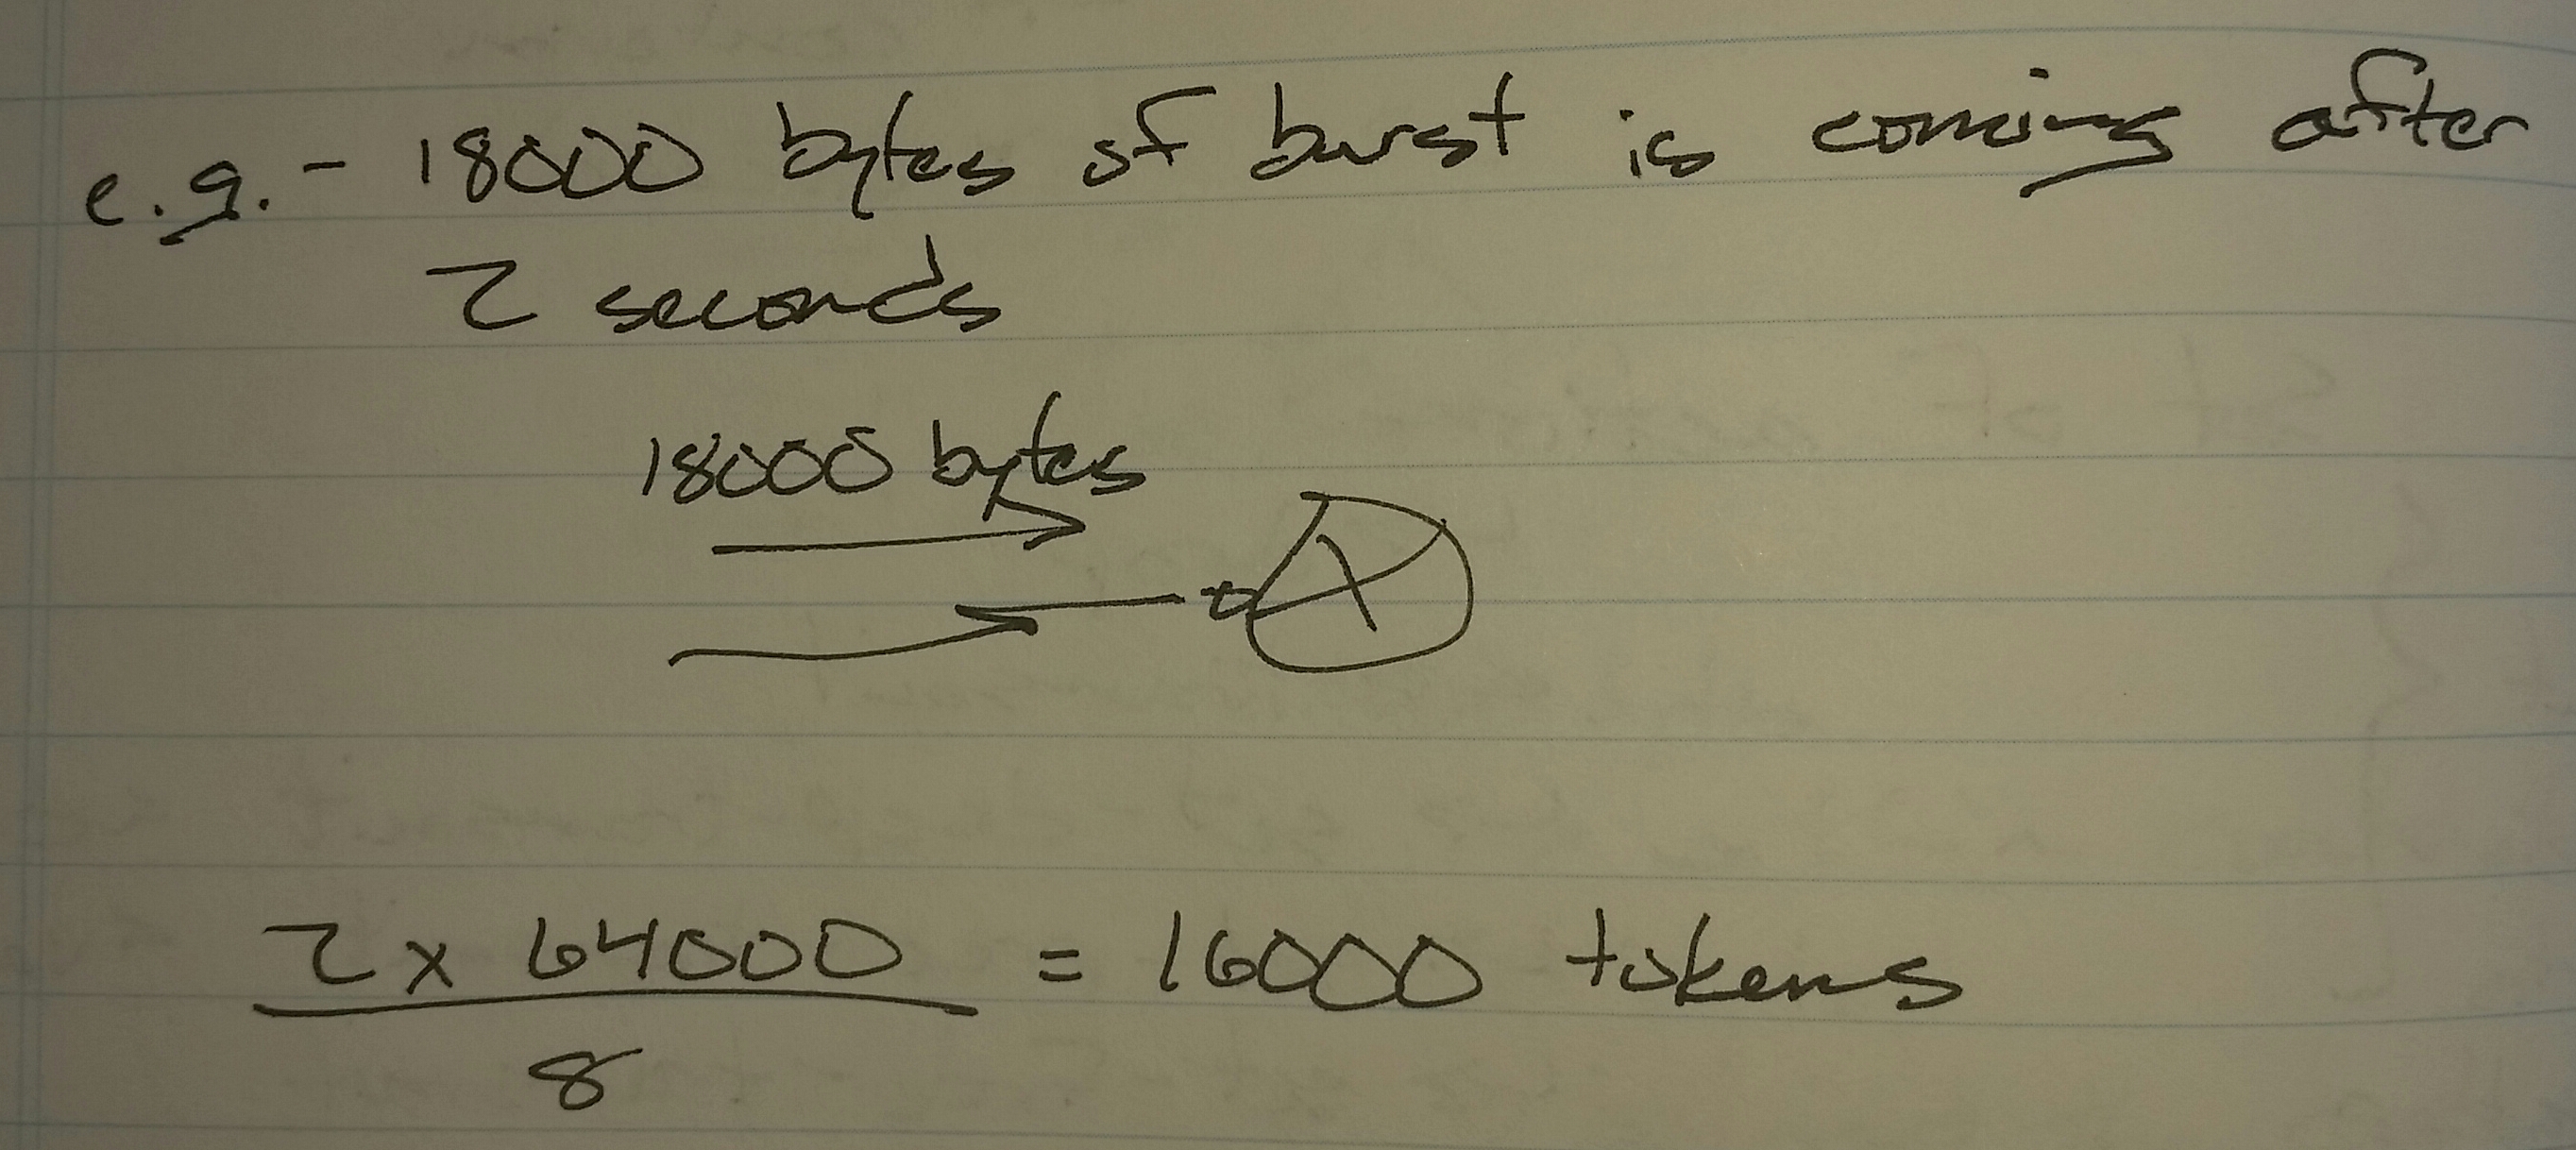 e.g. - 18000 bytes of burst is coming after
2 seconds
18000 bytes
2 x 64000 = 16000 tokens
8